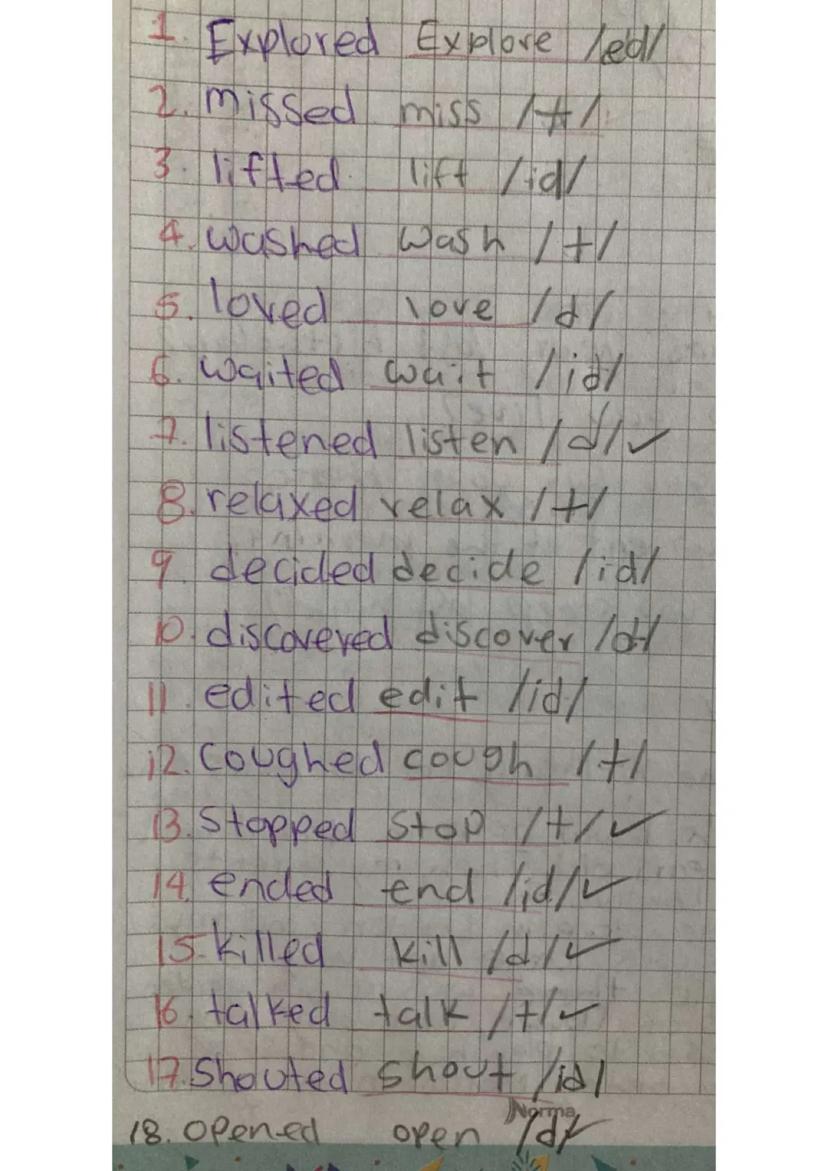 1. Explored Explore /ed/
2. missed miss /t/
3. lifted lift /id/
4. washed wash /t/
5. loved love /d/
6. waited wait /id/
7. listened listen /d/ ✓
8. relaxed relax /t/
9. decided decide /id/
10. discovered discover /d/
11. edited edit /id/
12. Coughed cough /t/
13. Stopped Stop /t/ ✓
14. ended end /id/ ✓
15. killed kill /d/ ✓
16. talked talk /t/ ✓
17. Shouted shout /id/
Norma
18. opened open /d/ ✓